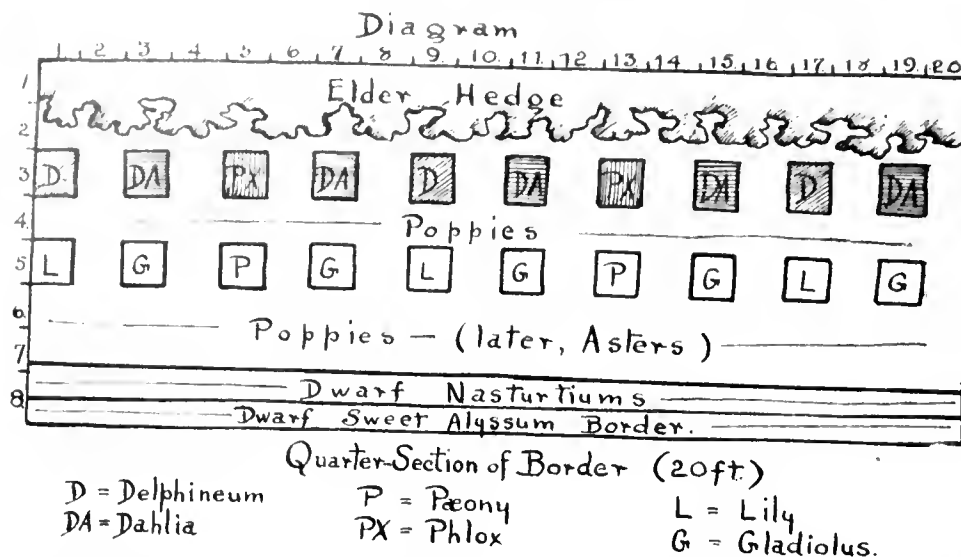 Diagram
1 2 3 4 5 6 7 8 9 10 11 12 13 14 15 16 17 18 19 20
1 Elder Hedge
2
3 D DA PX DA D DA PX DA D DA
4 Poppies
5 L G P G L G P G L G
6 Poppies - (later, Asters)
7
Dwarf Nasturtiums
8
Dwarf Sweet Alyssum Border.
Quarter-Section of Border (20ft.)
D = Delphineum P = Pæony L = Lily
DA = Dahlia PX = Phlox G = Gladiolus.